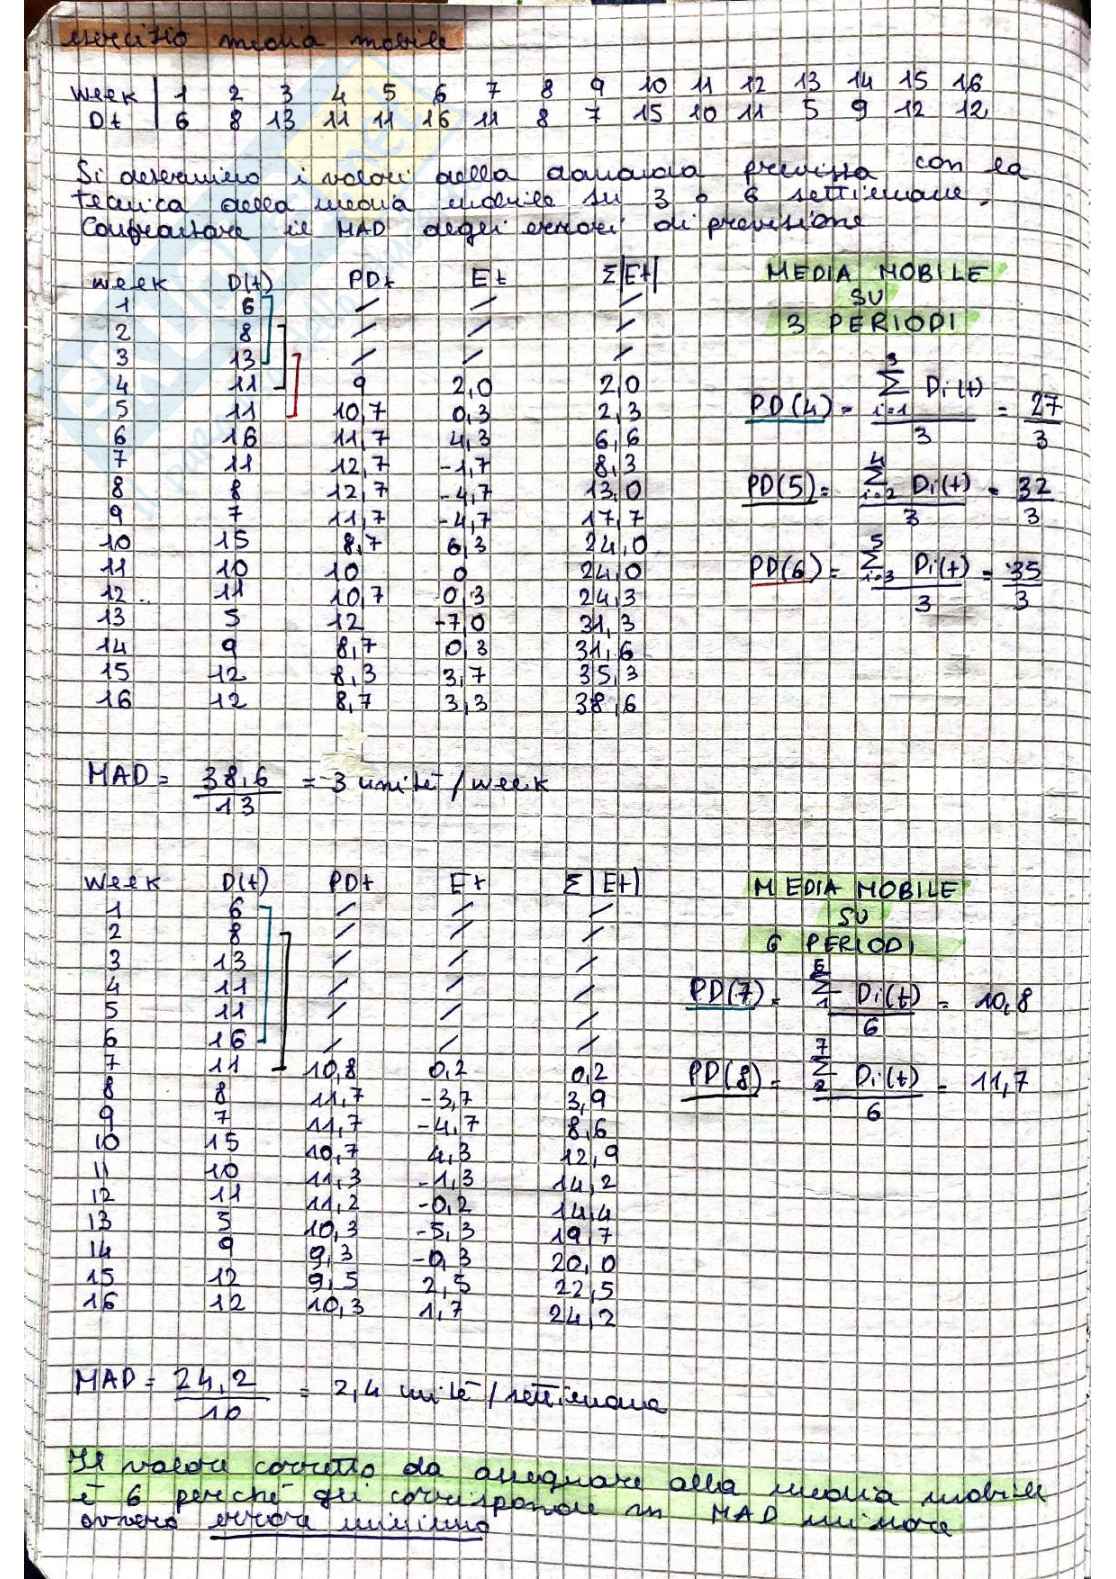 esercizio media mobile
Week 1 2 3 4 5 6 7 8 9 10 11 12 13 14 15 16
Dt 6 8 13 11 11 16 11 8 7 15 10 11 5 9 12 12
Si determinino i valori della domanda prevista con la
tecnica della media mobile su 3 o 6 settimane.
Confrontare il MAD degli errori di previsione
week D(t) PDt Et Σ|Et|
1 6 / / /
2 8 / / /
3 13 / / /
4 11 9 2,0 2,0
5 11 10,7 0,3 2,3
6 16 11,7 4,3 6,6
7 11 12,7 -1,7 8,3
8 8 12,7 -4,7 13,0
9 7 11,7 -4,7 17,7
10 15 8,7 6,3 24,0
11 10 10 0 24,0
12 11 10,7 0,3 24,3
13 5 12 -7,0 31,3
14 9 8,7 0,3 31,6
15 12 8,3 3,7 35,3
16 12 8,7 3,3 38,6
MEDIA MOBILE
SU
3 PERIODI
PD(4) = Σ i=1 3 Di(t) / 3 = 27/3
PD(5) = Σ i=2 4 Di(t) / 3 = 32/3
PD(6) = Σ i=3 5 Di(t) / 3 = 35/3
MAD = 38,6 / 13 = 3 unità/week
Week D(t) PDt Et Σ|Et|
1 6 / / /
2 8 / / /
3 13 / / /
4 11 / / /
5 11 / / /
6 16 / / /
7 11 10,8 0,2 0,2
8 8 11,7 -3,7 3,9
9 7 11,7 -4,7 8,6
10 15 10,7 4,3 12,9
11 10 11,3 -1,3 14,2
12 11 11,2 -0,2 14,4
13 5 10,3 -5,3 19,7
14 9 9,3 -0,3 20,0
15 12 9,5 2,5 22,5
16 12 10,3 1,7 24,2
MEDIA MOBILE
SU
6 PERIODI
PD(7) = Σ 1 6 Di(t) / 6 = 10,8
PD(8) = Σ 2 7 Di(t) / 6 = 11,7
MAD = 24,2 / 10 = 2,4 unità/settimana
Il valore corretto da assegnare alla media mobile
è 6 perché gli corrisponde un MAD minore
ovvero errore minimo